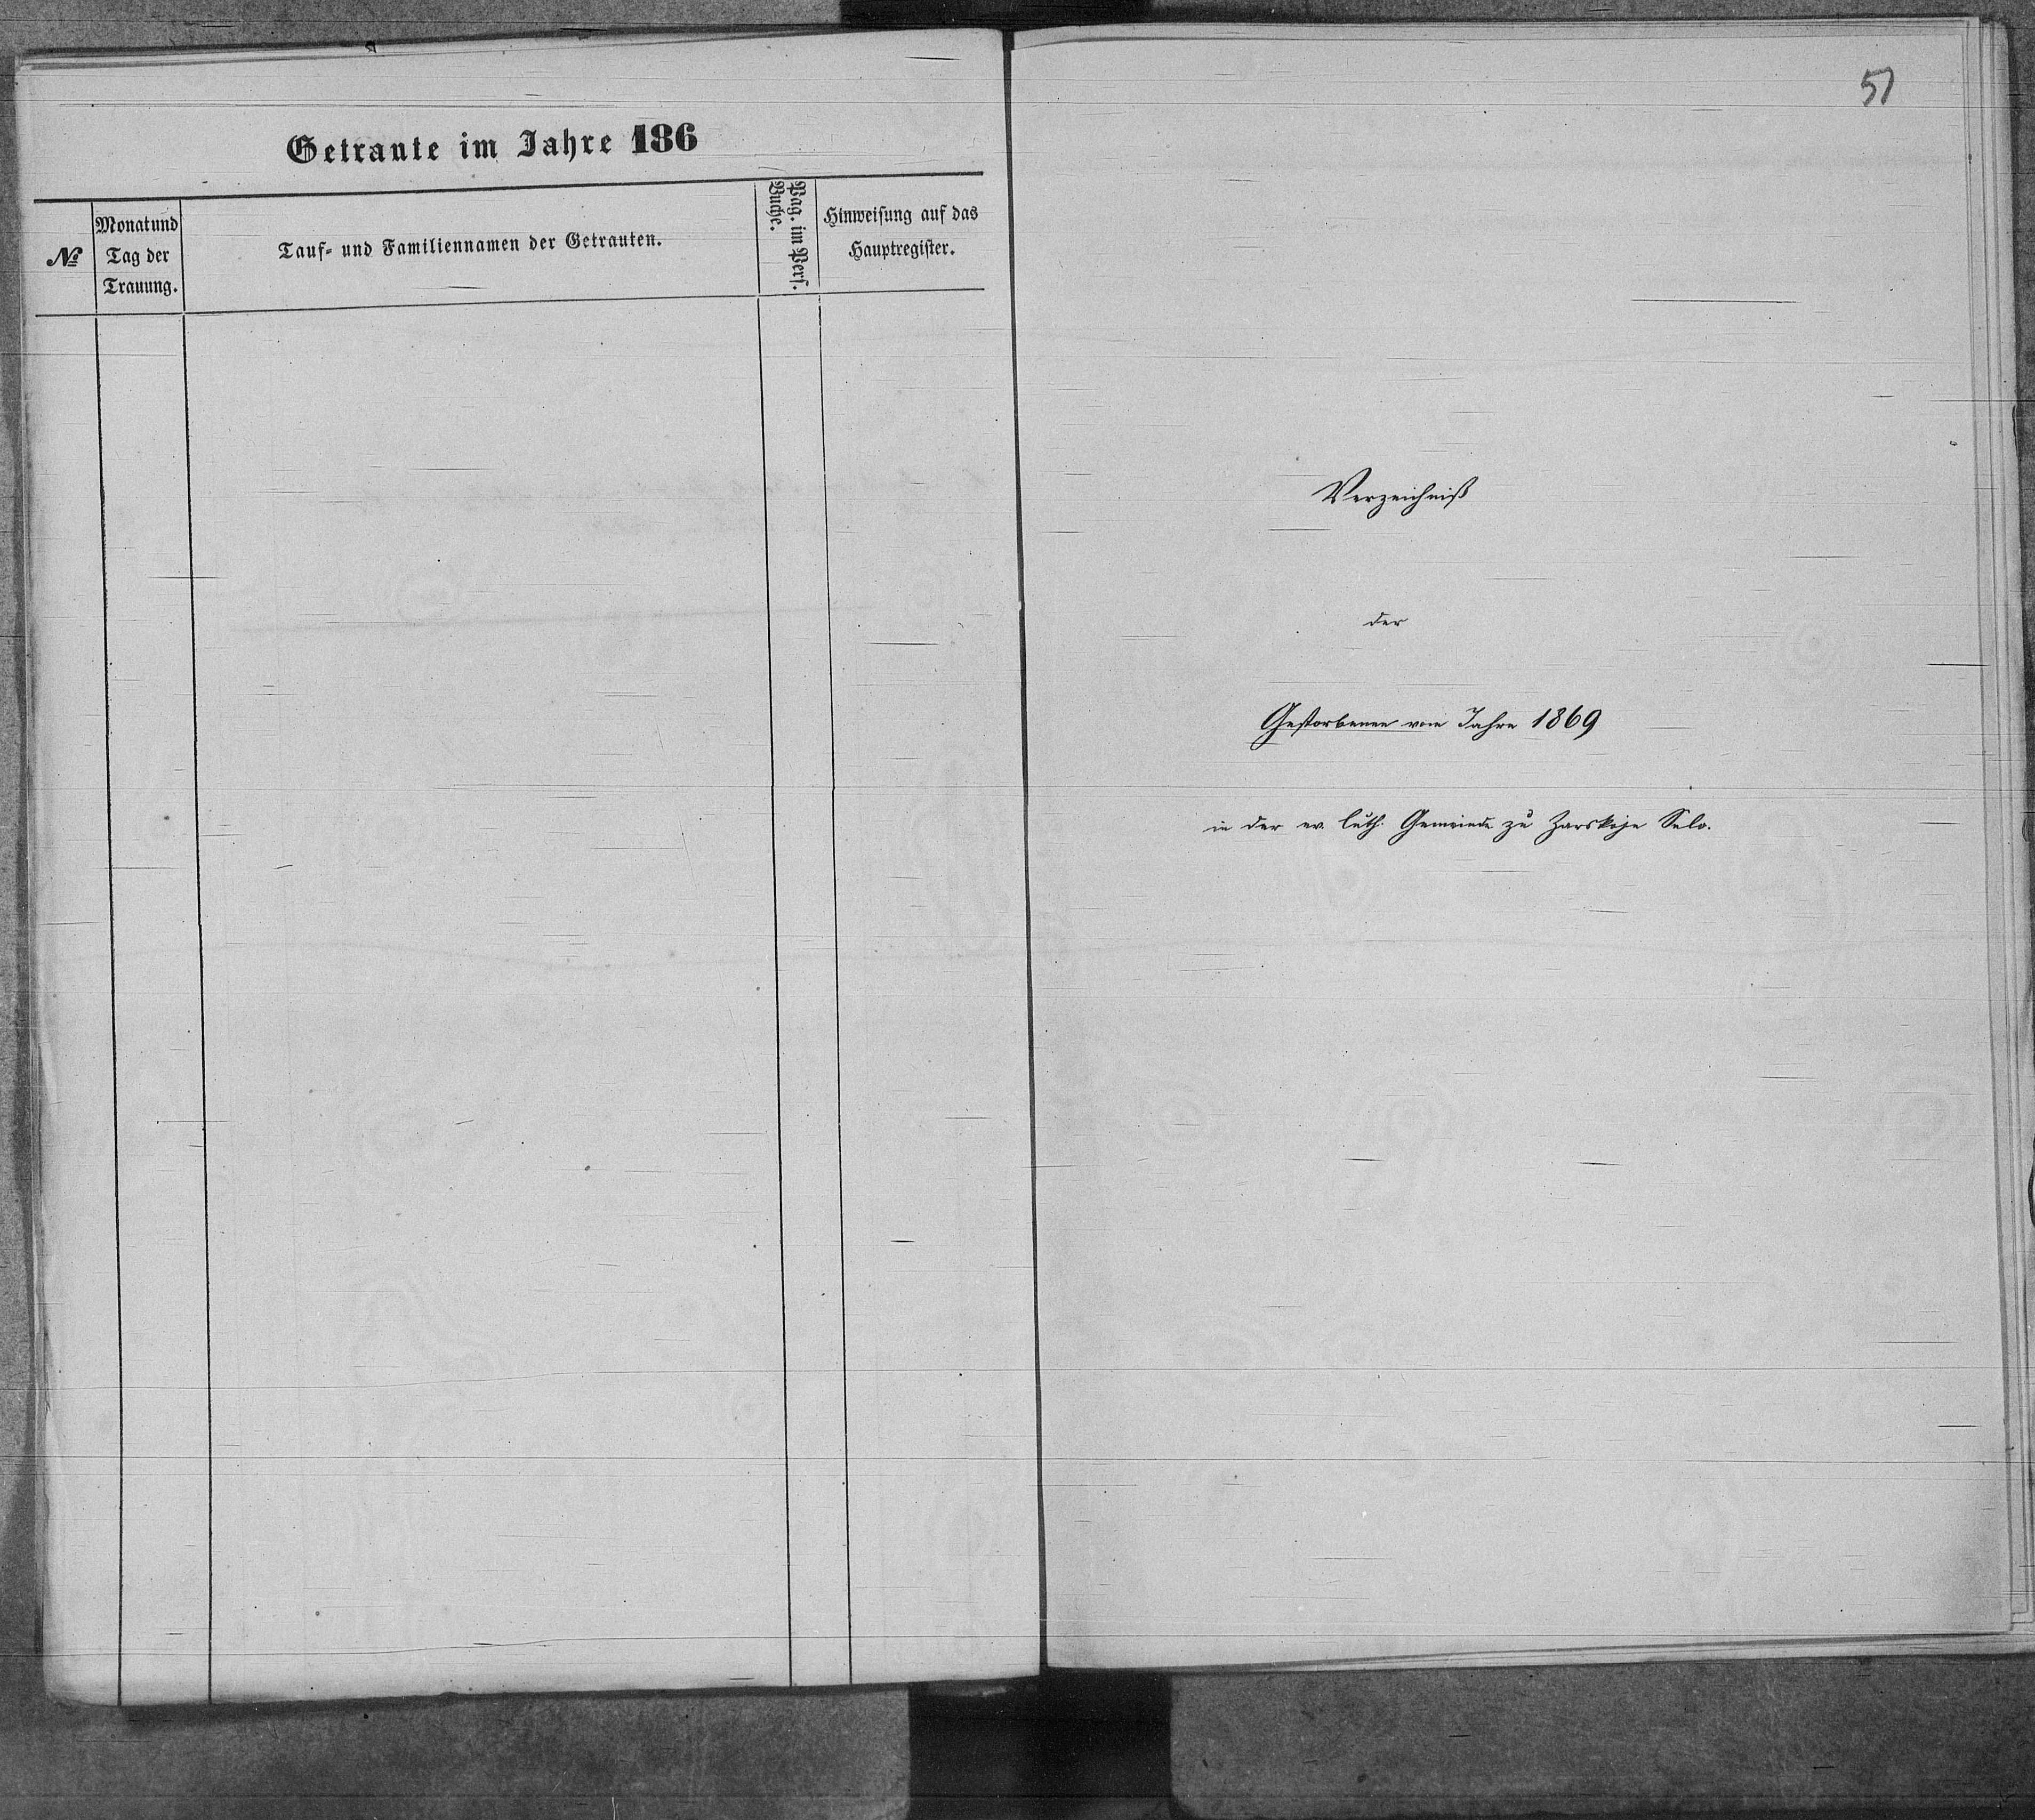 Getraute im Jahre 186
№
Monat und
Tag der
Trauung.
Tauf- und Familiennamen der Getrauten.
Pag. im Pers.
Buche.
Hinweisung auf das
Hauptregister.
51
Verzeichniß
der
Gestorbenen vom Jahre 1869
in der ev. luth. Gemeinde zu Zarskoje Selo.